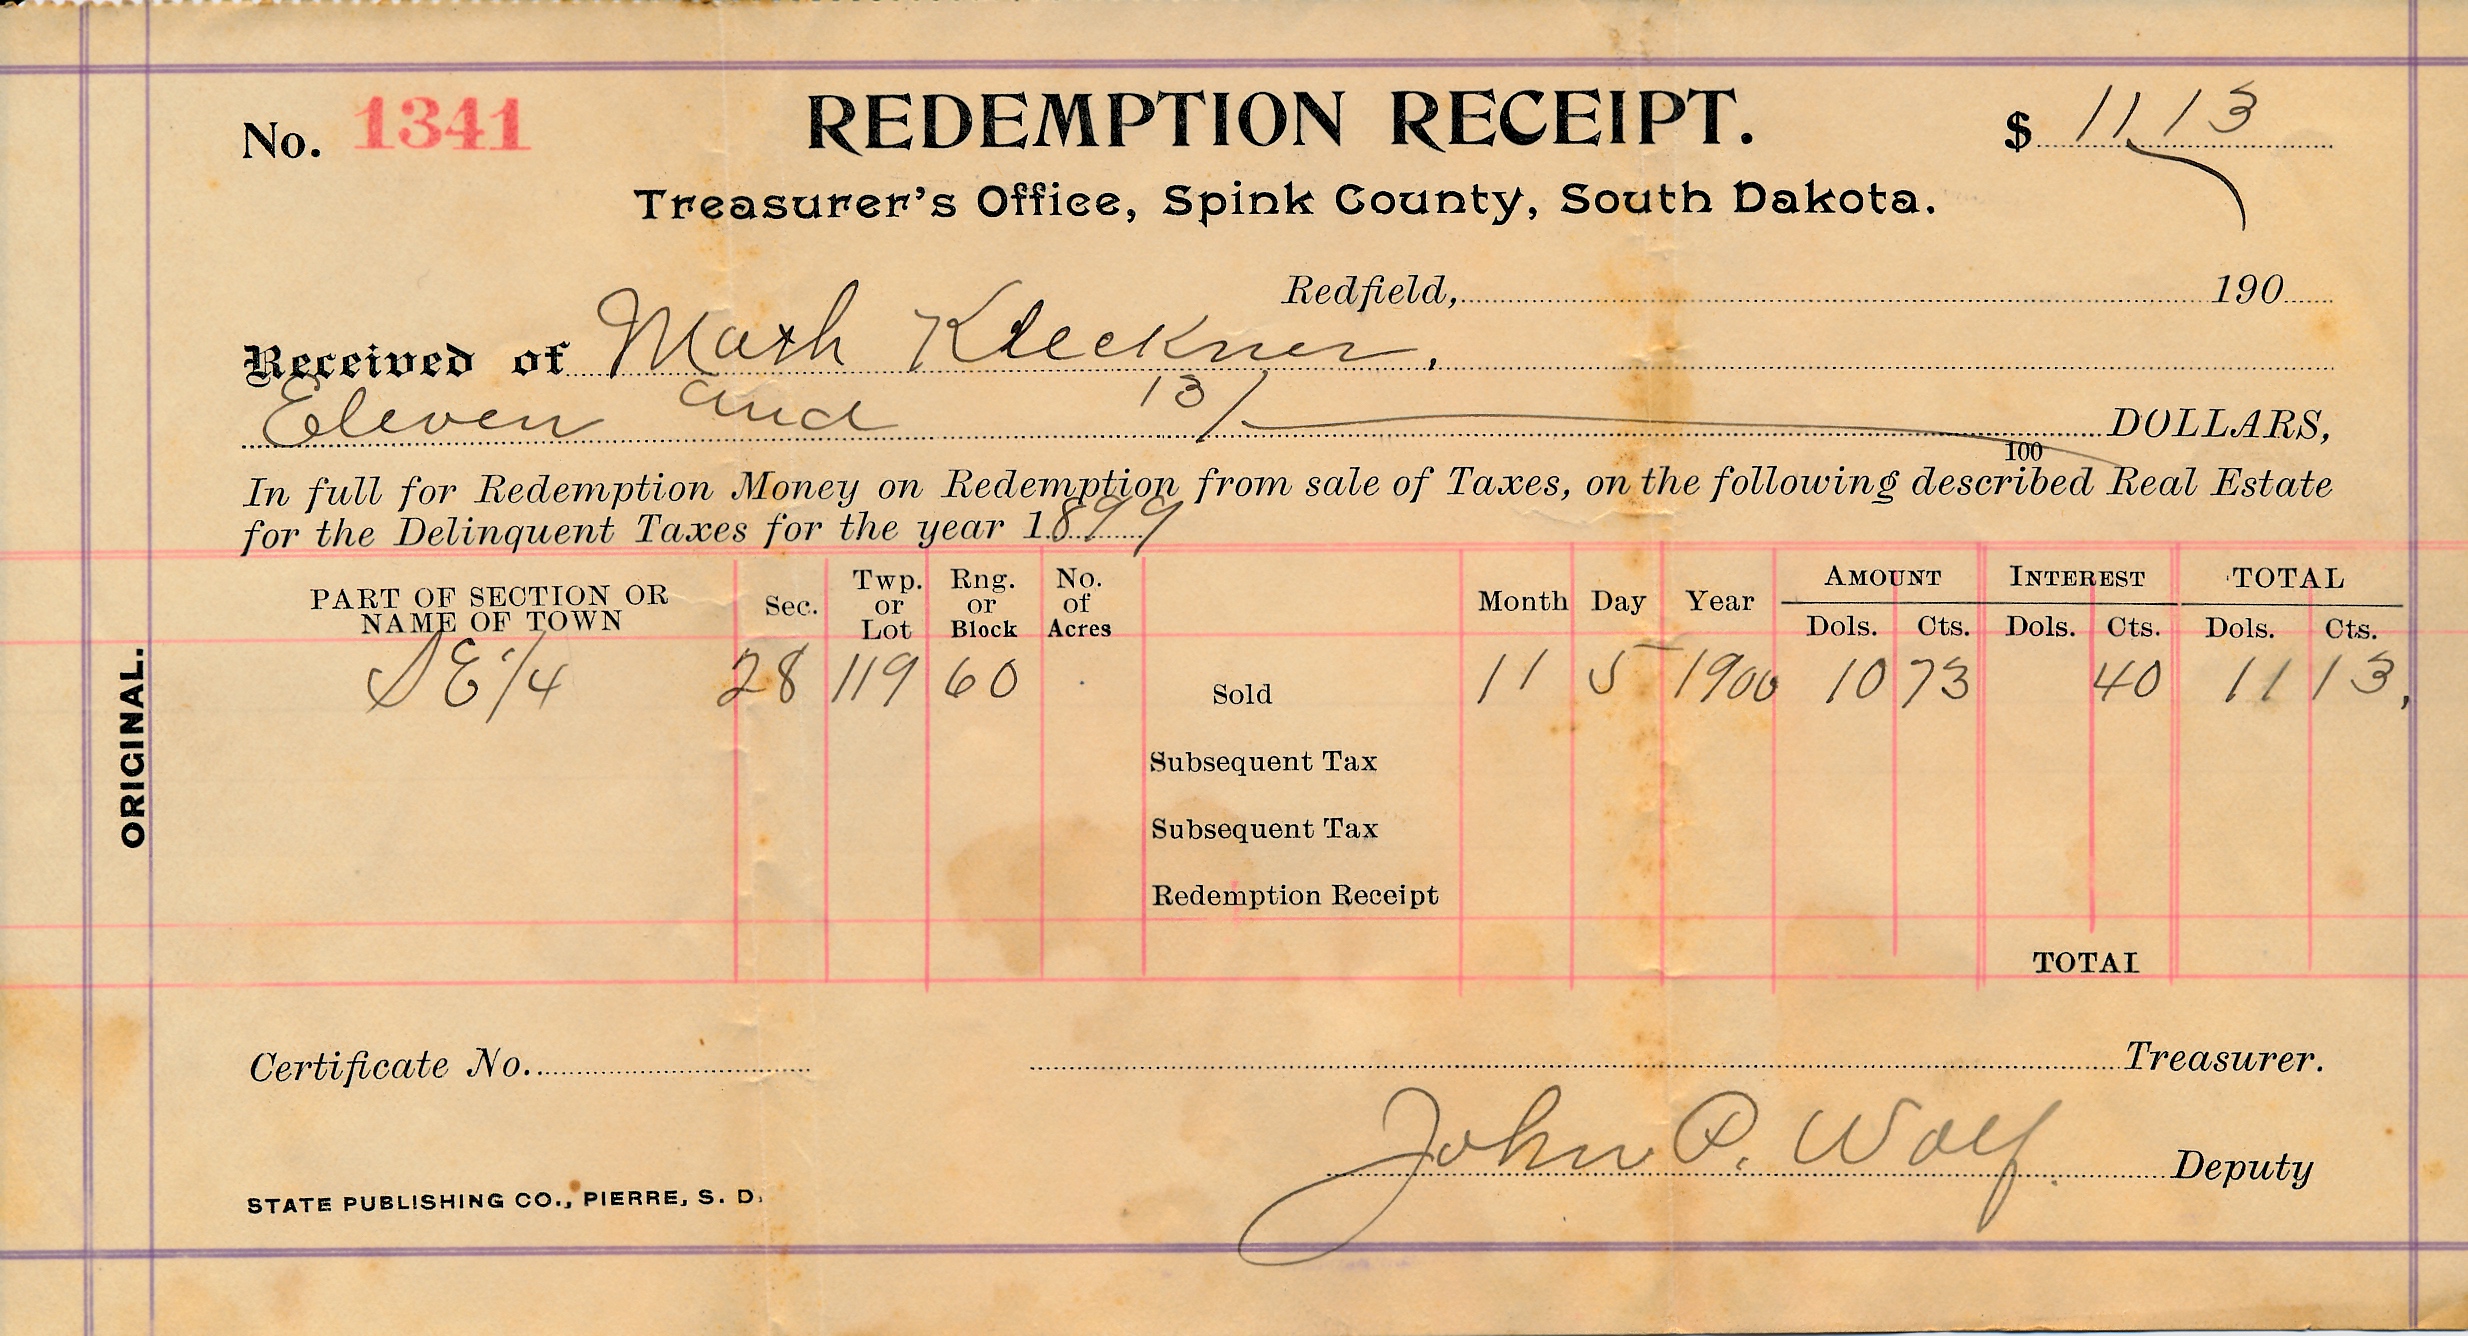 No. 1341 REDEMPTION RECEIPT. $ 11 13
Treasurer's Office, Spink County, South Dakota.
Redfield, 190
Received of Math Kleckner,
Eleven and 13/100 DOLLARS,
In full for Redemption Money on Redemption from sale of Taxes, on the following described Real Estate
for the Delinquent Taxes for the year 1899
PART OF SECTION OR NAME OF TOWN Sec. Twp. or Lot Rng. or Block No. of Acres Month Day Year AMOUNT Dols. Cts. INTEREST Dols. Cts. TOTAL Dols. Cts.
SE 1/4 28 119 60 Sold 11 5 1900 10 73 40 11 13,
Subsequent Tax
Subsequent Tax
Redemption Receipt
TOTAL
ORIGINAL.
Certificate No. Treasurer.
John P. Wolf. Deputy
STATE PUBLISHING CO., PIERRE, S. D.